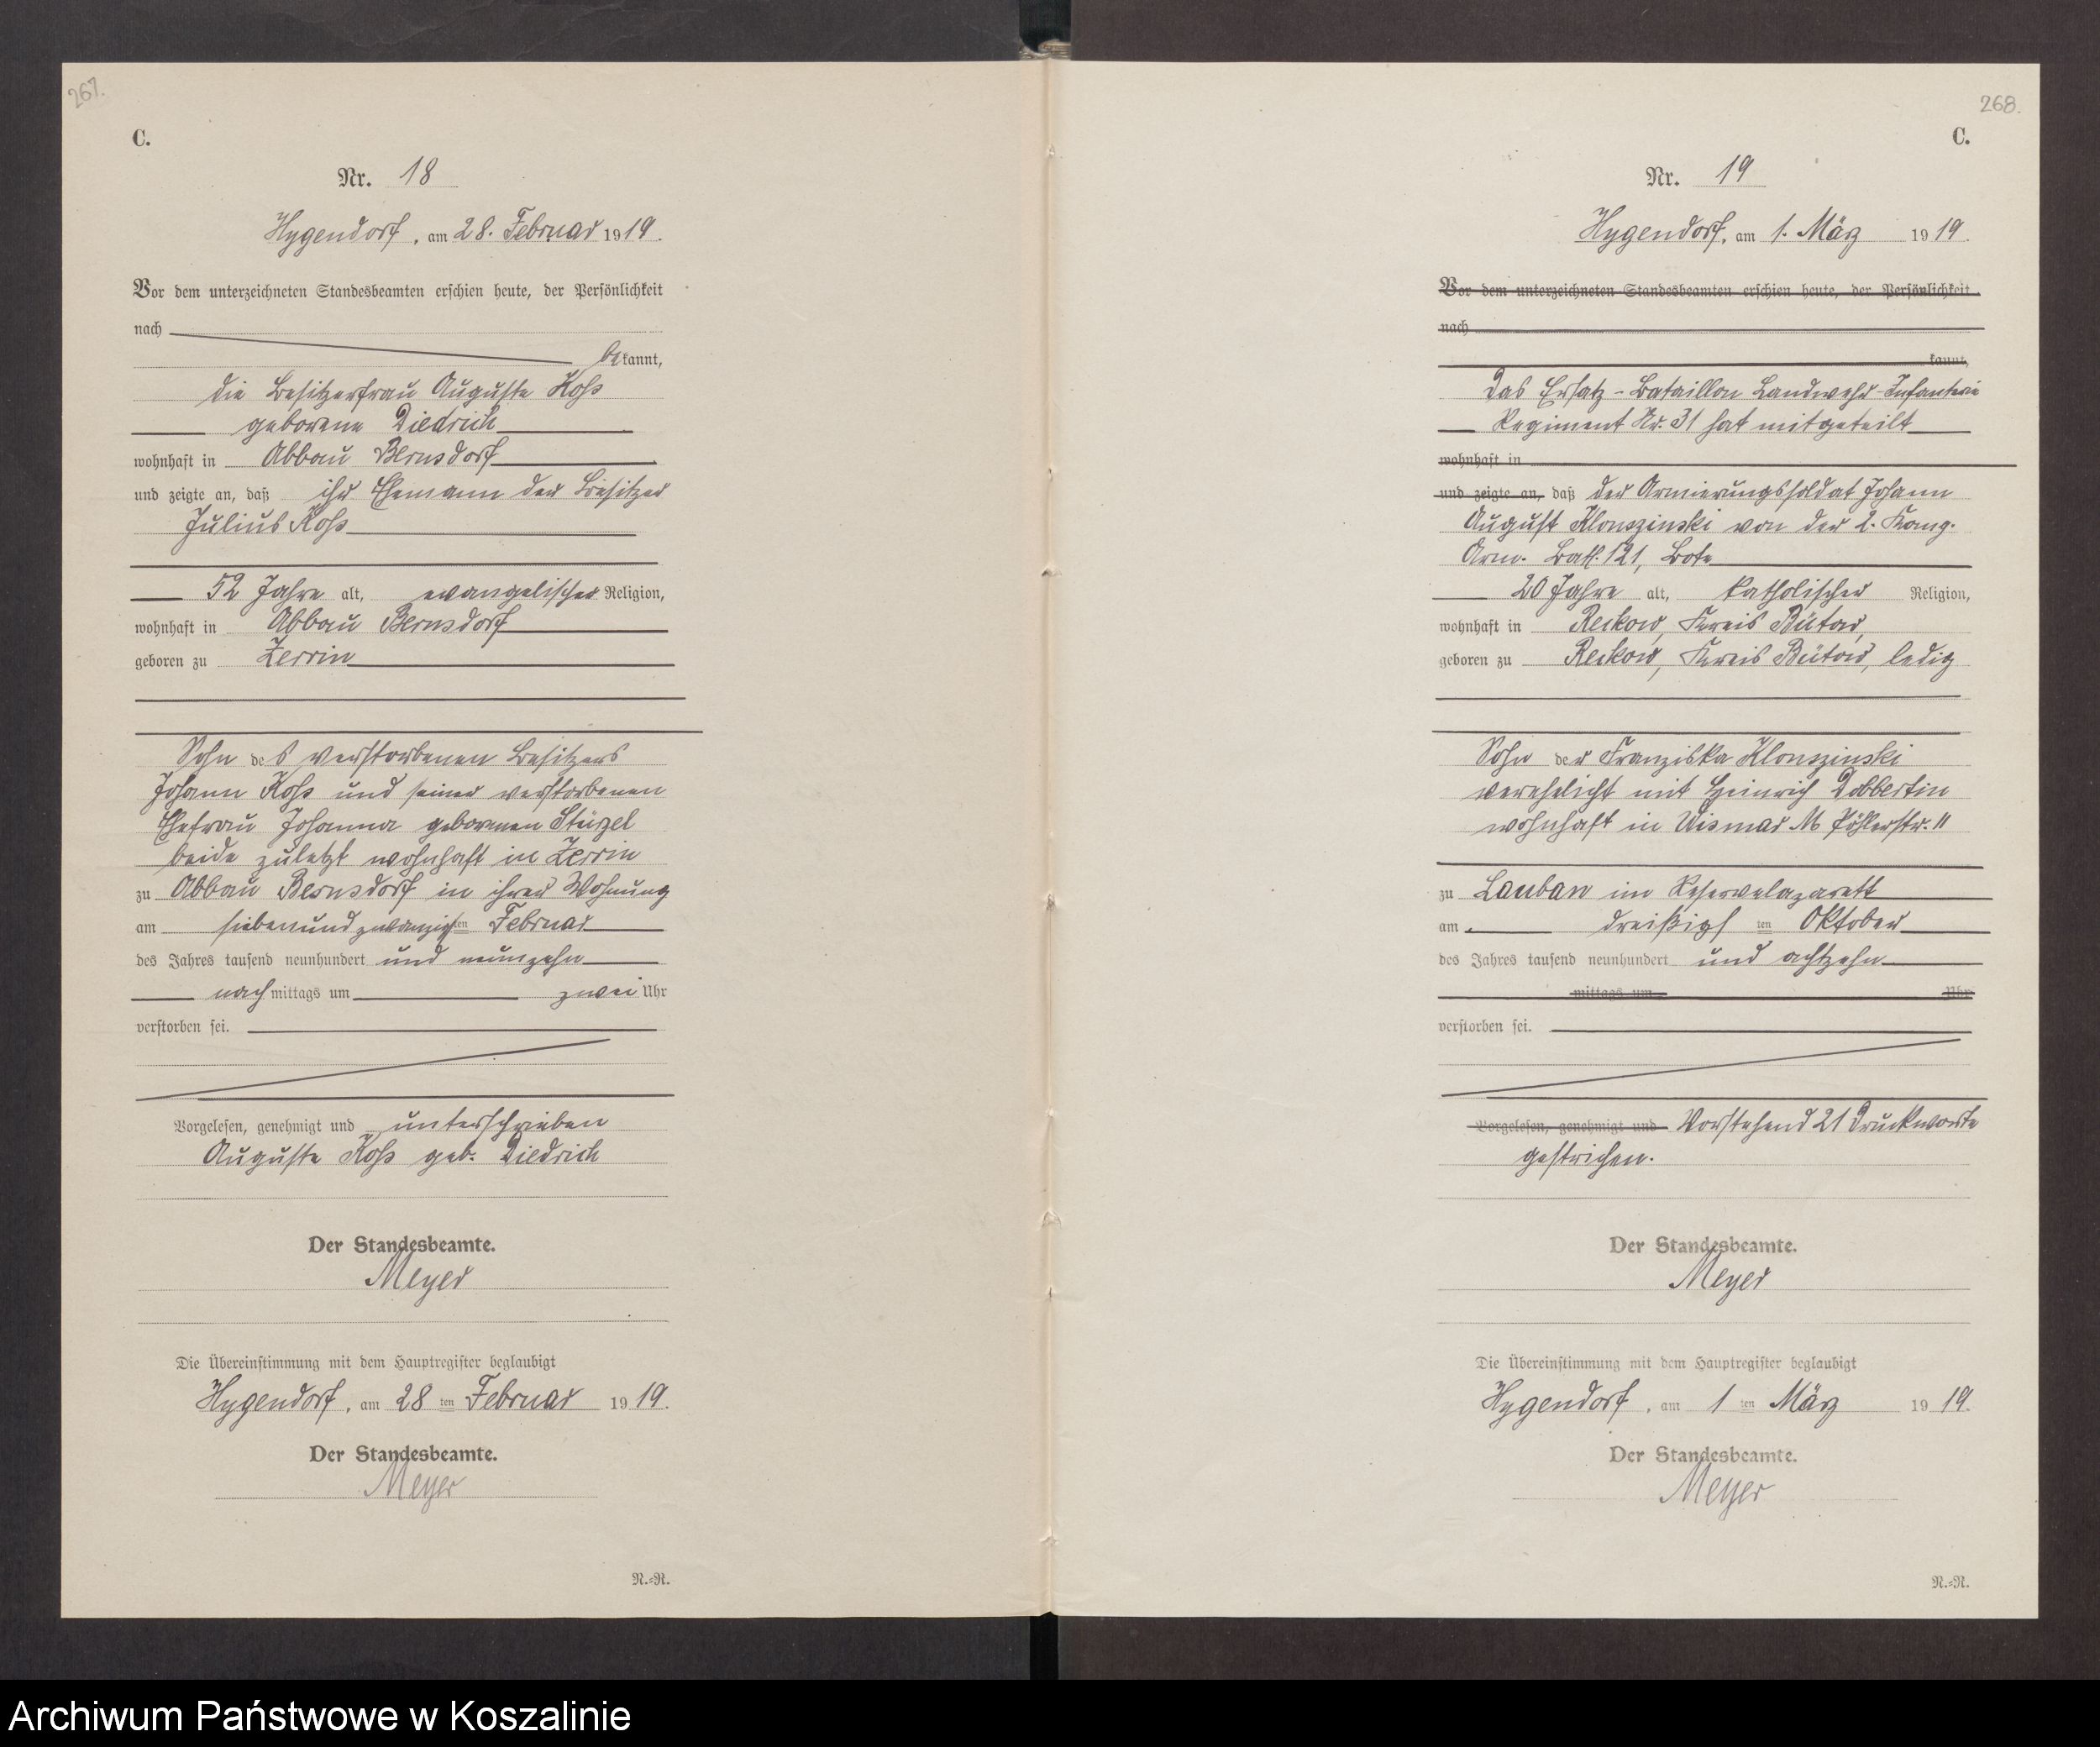 267.
C.
Nr. 18
Hygendorf, am 28. Februar 1919.
Vor dem unterzeichneten Standesbeamten erschien heute, der Persönlichkeit
nach
bekannt,
die Besitzerfrau Auguste Koss
geborene Diedrich
wohnhaft in Abbau Bernsdorf
und zeigte an, daß ihr Ehemann der Besitzer
Julius Koss
52 Jahre alt, evangelischer Religion,
wohnhaft in Abbau Bernsdorf
geboren zu Zerrin
Sohn des verstorbenen Besitzers
Johann Koss und seiner verstorbenen
Ehefrau Johanna geborenen Stürzel
beide zuletzt wohnhaft in Zerrin
zu Abbau Bernsdorf in ihrer Wohnung
am siebenundzwanzigsten Februar
des Jahres tausend neunhundert und neunzehn
nachmittags um zwei Uhr
verstorben sei.
Vorgelesen, genehmigt und unterschrieben
Auguste Koss geb. Diedrich
Der Standesbeamte.
Meyer
Die Übereinstimmung mit dem Hauptregister beglaubigt
Hygendorf, am 28 ten Februar 1919.
Der Standesbeamte.
Meyer
R.=R.
268.
C.
Nr. 19
Hygendorf, am 1. März 1919.
Vor dem unterzeichneten Standesbeamten erschien heute, der Persönlichkeit
nach
kannt,
Das Ersatz-Bataillon Landwehr-Infanterie
Regiment Nr. 31 hat mitgeteilt
wohnhaft in
und zeigte an, daß der Armierungssoldat Johann
August Klonszinski von der 2. Komp.
Arm. Batl. 121, Bote
20 Jahre alt, katholischer Religion,
wohnhaft in Reckow, Kreis Bütow,
geboren zu Reckow, Kreis Bütow, ledig
Sohn der Franziska Klonszinski
verehelicht mit Heinrich Dobbertin
wohnhaft in Wismar M. 11
zu Lauban im Reservelazarett
am dreißigsten Oktober
des Jahres tausend neunhundert und achtzehn
mittags um Uhr
verstorben sei.
Vorgelesen, genehmigt und Vorstehend 21 Druckworte
gestrichen.
Der Standesbeamte.
Meyer
Die Übereinstimmung mit dem Hauptregister beglaubigt
Hygendorf, am 1 ten März 1919.
Der Standesbeamte.
Meyer
R.=R.
Archiwum Państwowe w Koszalinie